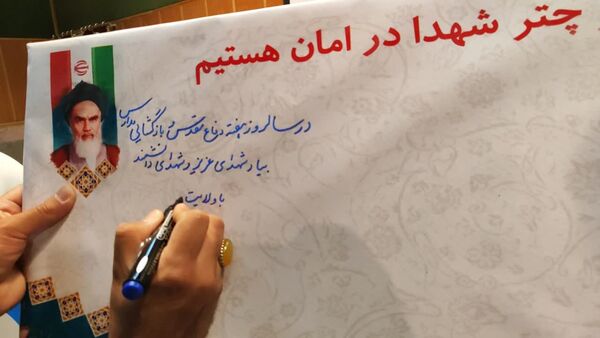 چتر شهدا در امان هستیم
در سالروز هفته دفاع مقدس و بازگشایی مدارس
بیاد شهدای عزیز و شهدای دانشمند
با ولایت